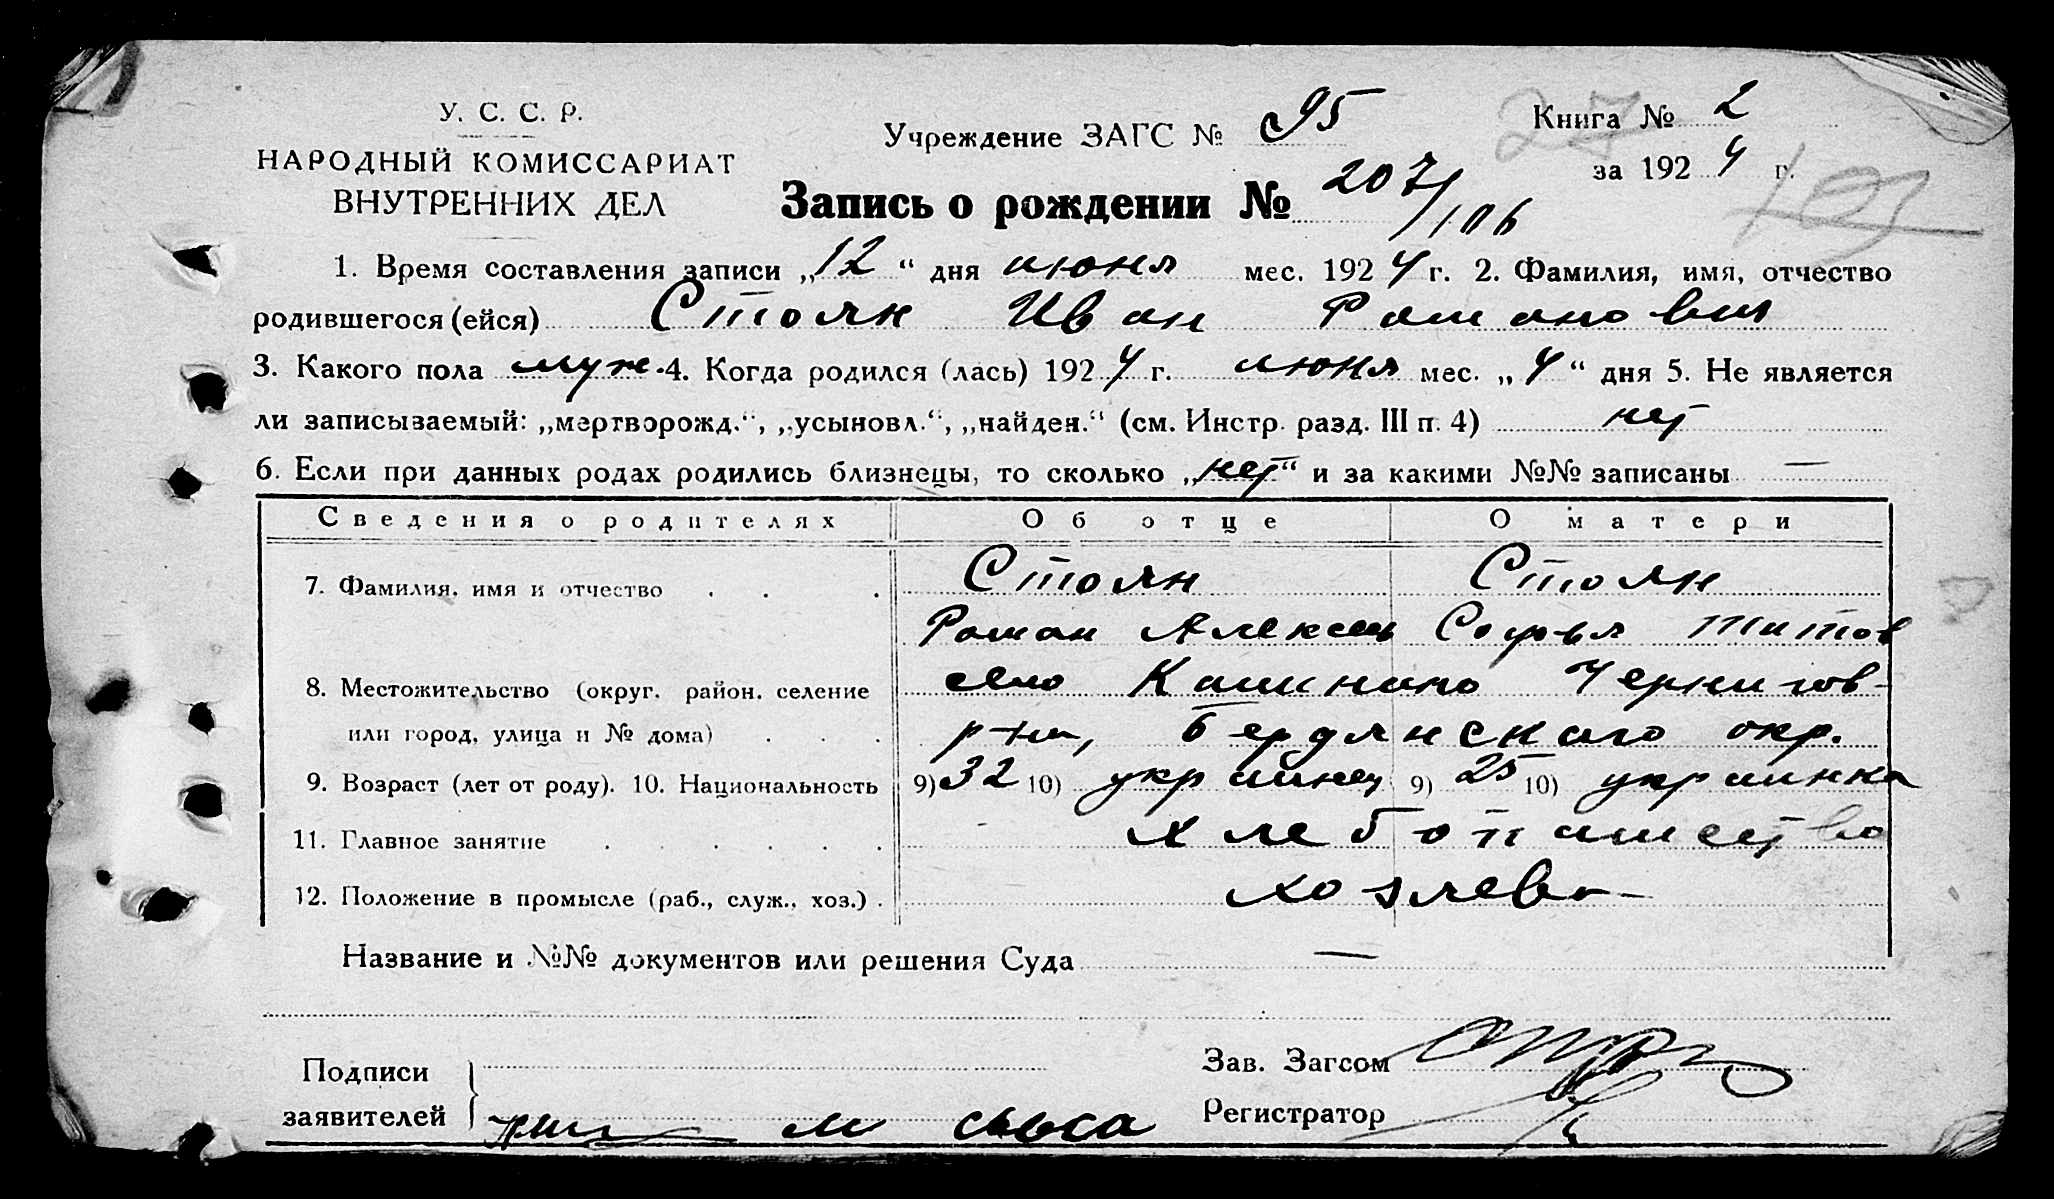 У. С. С. Р.
НАРОДНЫЙ КОМИССАРИАТ
ВНУТРЕННИХ ДЕЛ
Учреждение ЗАГС № 95
Книга № 2
за 1924 г.
Запись о рождении № 207/106
1. Время составления записи „12“ дня июня мес. 1924 г. 2. Фамилия, имя, отчество
родившегося (ейся) Стоян Иван Романович
3. Какого пола муж. 4. Когда родился (лась) 1924 г. июня мес. „4“ дня 5. Не является
ли записываемый: „мертворожд.“, „усыновл.“, „найден.“ (см. Инстр. разд. III п. 4) нет
6. Если при данных родах родились близнецы, то сколько „нет“ и за какими №№ записаны —
Сведения о родителях Об отце О матери
7. Фамилия, имя и отчество . . . Стоян Стоян
Роман Алексеев Софья Титов
8. Местожительство (округ, район, селение село Чернигов-
или город, улица и № дома) . . . р-на, Бердянского окр.
9. Возраст (лет от роду). 10. Национальность 9) 32 10) украинец 9) 25 10) украинка
11. Главное занятие . . . . . . хлебопашество
12. Положение в промысле (раб., служ., хоз.) .
Название и №№ документов или решения Суда —
Подписи
заявителей
Зав. Загсом
Регистратор